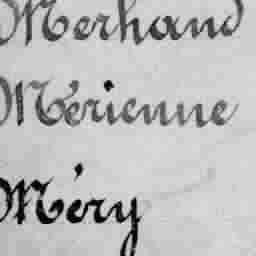 Merhand
Mérienne
Méry